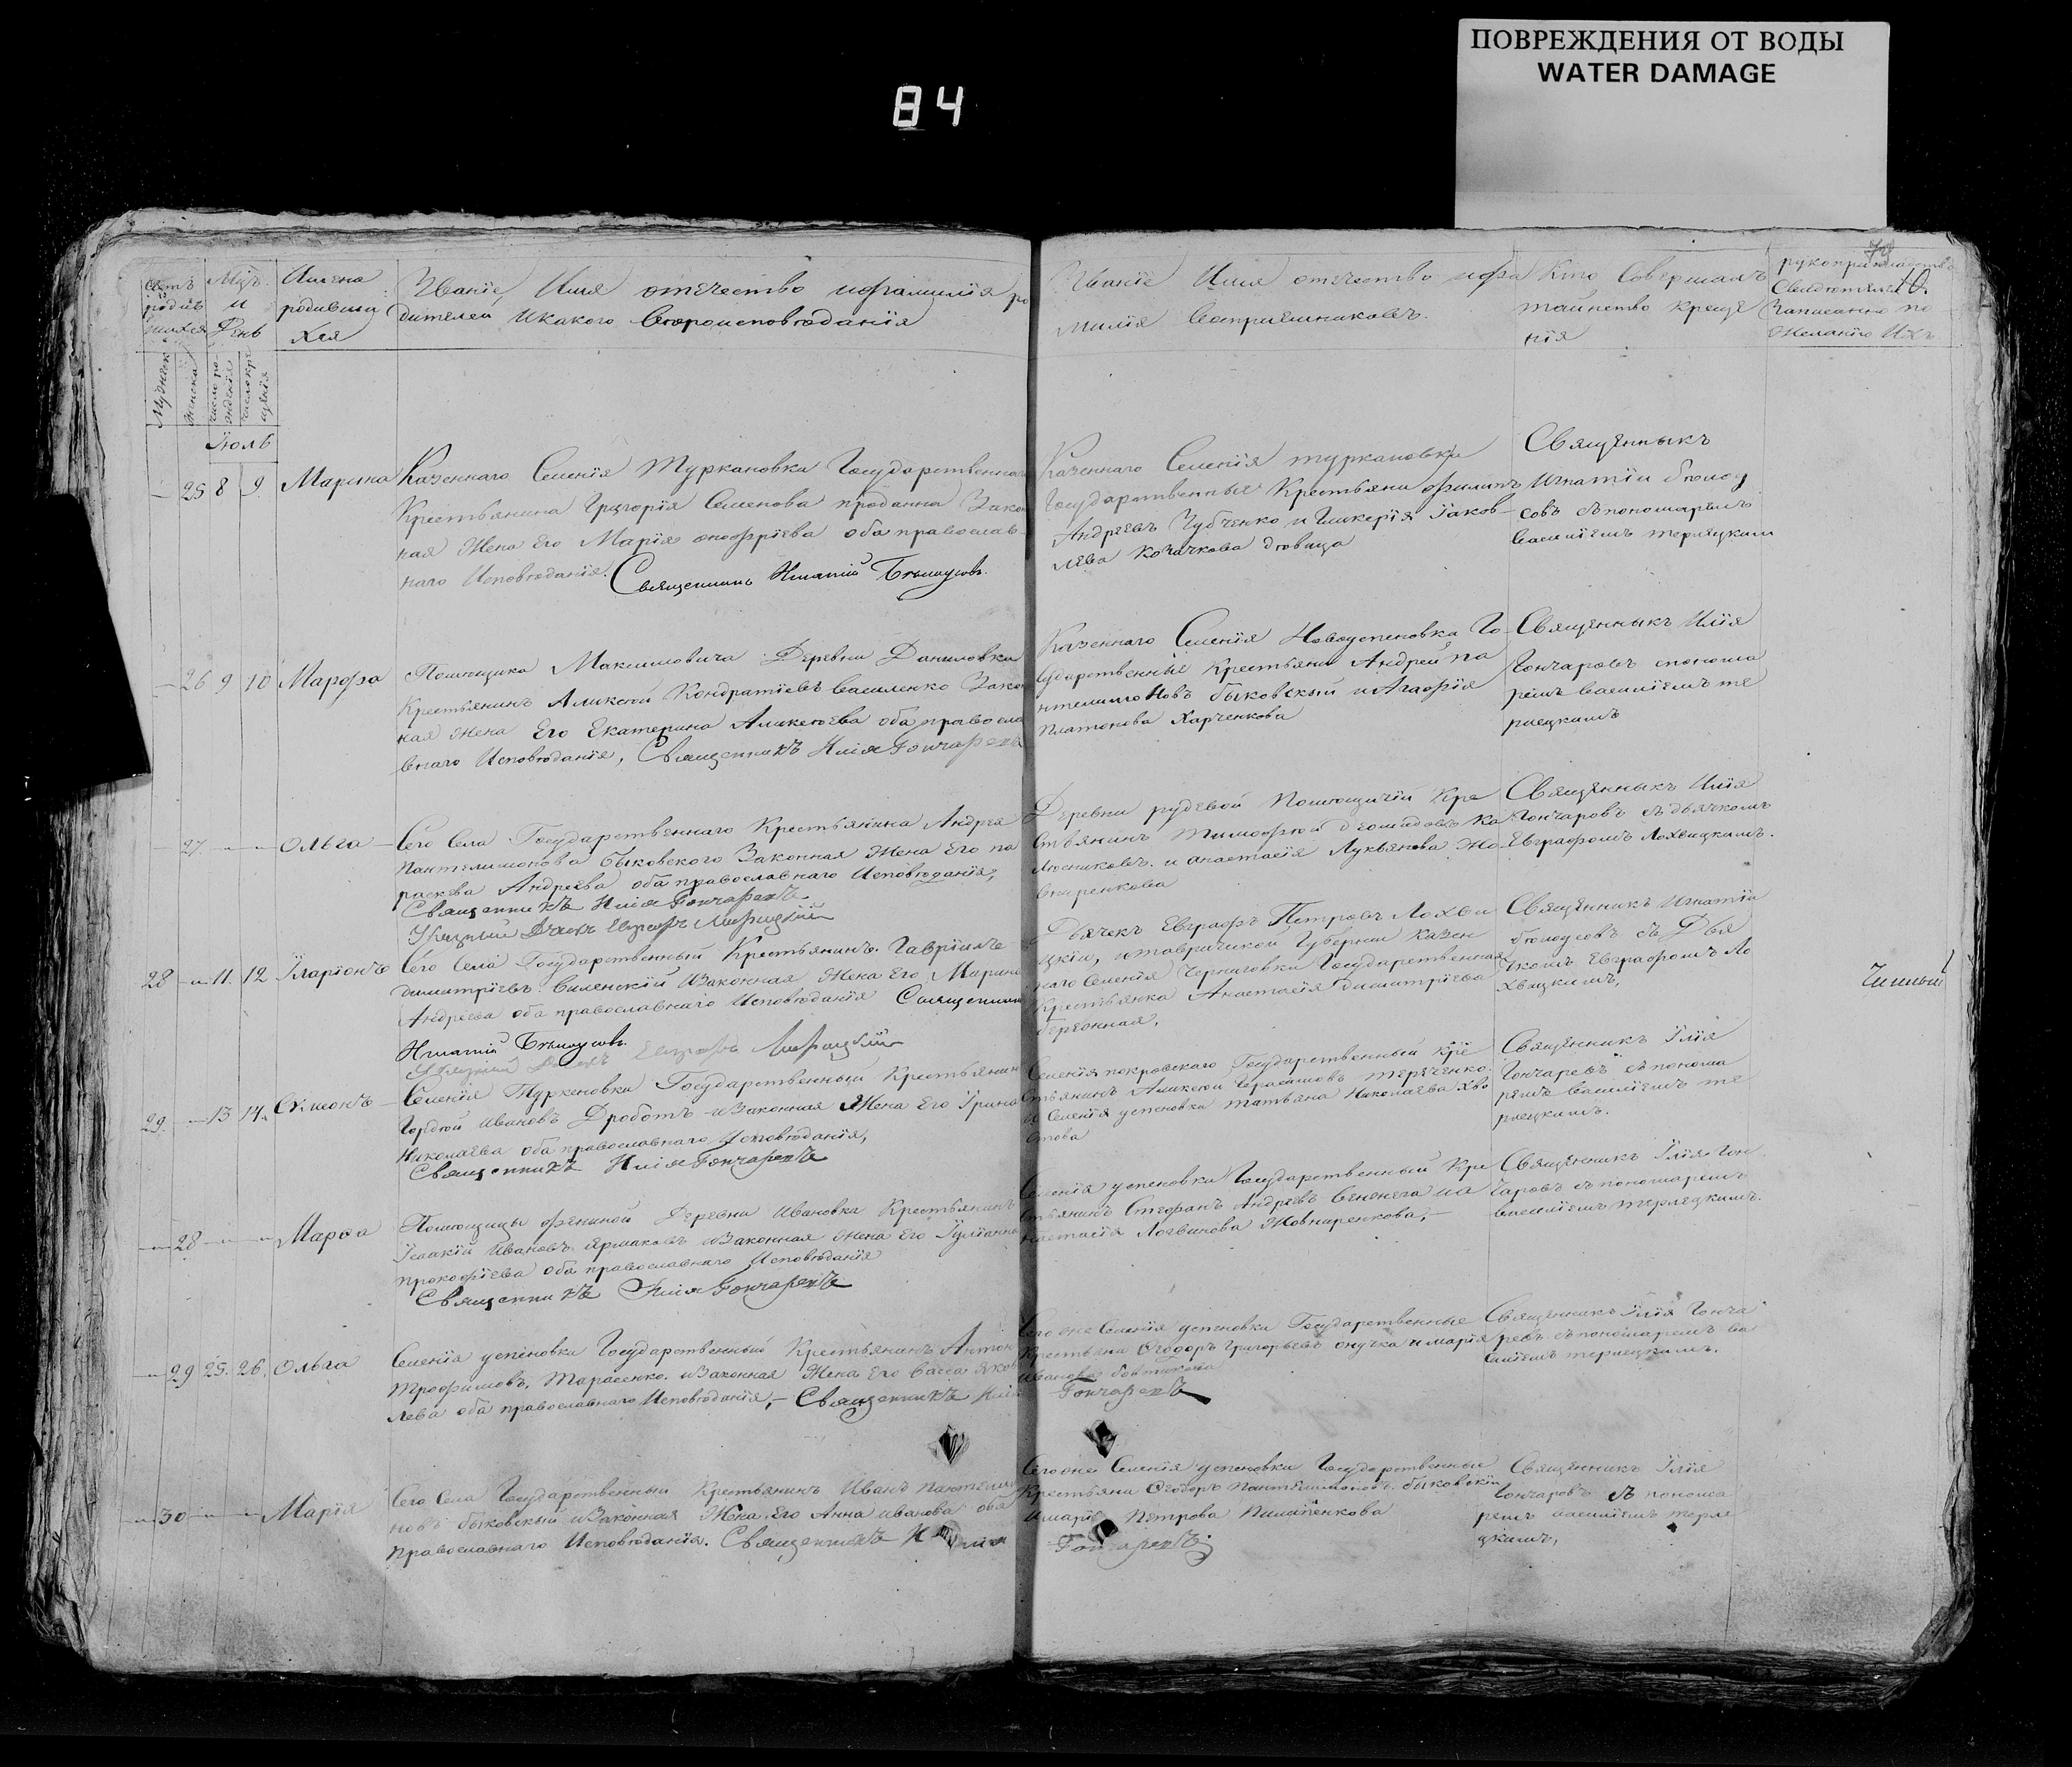 ПОВРЕЖДЕНИЯ ОТ ВОДЫ
WATER DAMAGE
84
Счетъ
родив
шихся
Мцъ
и
День
Имена
родивши
хся
Званїе, Имя отечество ифамилїя ро
дителей, Икакого Вероисповѣданїя
Званїе Имя отечество ифа
милїя Восприемниковъ.
Кто Совершалъ
таинство креще
нїя
рукоприкладство
Свидѣтелей
Записанно по
Желанїю Ихъ
10.
Мужеск
женска
число ро
жденїя
число кре
щенїя
Їюль
25 8 9 Марина
Казеннаго Селенїя Туркановка Государственнаго
Крестьянина Григорїя Семенова проданна Зако
ная Жена Его Марїя онофрїева оба православ
наго Исповѣданїя. Священникъ Игнатїй Бѣлоусовъ.
Казеннаго Селенїя туркановки
Государственные Крестьяни филипъ
Андреевъ Зубченко и Гликерїя Їаков
лева Козачкова дѣвица
Священныкъ
Игнатїи бѣлоу
совъ съпономаремъ
василїемъ терлецким
26 9 10 Марфа
Помѣщика Максимовича Деревни Даниловки
Крестьянинъ Алиѯѣй Кондратїевъ василенко Зако
ная жена Его Екатерина Алиѯѣева оба правосла
внаго Исповѣданїя, Священникъ Илїя Гончаревъ
Казеннаго Селенїя Новоуспеновка Го
сударственные Крестьяни Андрей па
нтелимоновъ быковскый иАгафїя
платонова Харченкова
Священныкъ Илїя
Гончаровъ спонома
ремъ василїемъ те
рлецкимъ
27 Ольга
Сего Села Государственнаго Крестьянина Андрея
пантелимонова быковского Законная Жена Его па
раскева Андреева оба православнаго Исповѣданїя,
Священникъ Илїя Гончаревъ
Деревни рудевой помѣщичїй Кре
стьянинъ Тимофѣй
и анастасїя Лукьянова Жо
внаренкова
Священныкъ Илїя
Гончаровъ съдьячкомъ
Евграфомъ Лохвицкимъ.
28 11. 12 Їларїонъ
Сего Села Государственный Крестьянинъ Гаврїилъ
димитрїевъ виленскїй иЗаконная Жена Его Марина
Андреева оба православнаго Исповѣданїя Священникъ
Игнатїй Бѣлоусовъ.
Дьячекъ Евграфъ Петровъ Лохви
цкїй, итаврической Губернїи казен
наго Селенїя Черниговки Государственная
Крестьянка Анастасїя димитрїева
Священникъ Игнатїи
бѣлоусовъ съ Дья
чкомъ Евграфомъ Ло
хвицкимъ,
29. 13 14. Сѵмеонъ
Селенїя Туркеновки Государственный Крестьянин
Гордѣй Ивановъ Дроботъ иЗаконная Жена Его Їрина
Николаева оба православнаго Исповѣданїя,
Священникъ Илїя Гончаревъ
Селенїя покровскаго Государственный Кре
стьянинъ Алиѯѣй Герасимовъ терещенко
и Селенїя успеновки татьяна Николаева хво
стова
Священникъ Їлїя
Гончаревъ съпонома
ремъ василїемъ те
рлецкимъ.
28 Марѳа
Помѣщицы фениной Деревни Ивановки Крестьянинъ
Їсаакїй Ивановъ Ярмаковъ иЗаконная Жена Его Їулїанна
прокофїева оба православнаго Исповѣданїя
Священникъ Илїя Гончаревъ
Селенїя успеновки Государственный Кре
стьянинъ Стефанъ Андреевъ Сененега иа
настасїя Логвинова Жовнаренкова,
Священникъ Їлїя Гон
чаровъ съпономаремъ
василїемъ терлецкимъ.
29 25. 26. Ольга
Селенїя успеновки Государственный Крестьянинъ Антон
трофимовъ. Тарасенко. иЗаконная Жена Его Васса Яков
лева оба православнаго Исповѣданїя, Священникъ Илїя
Гончаревъ
Селенїя успеновки Государственные
Крестьяни Ѳеодоръ Григорьевъ онучка и марїя
иванова
Священникъ Їлїя Гонча
ревъ съпономаремъ ва
силїемъ терлецкимъ.
30 Марїя
Сего Села Государственный Крестьянинъ Иванъ пантели
новъ быковскый иЗаконная Жена Его Анна иванова оба
Православнаго Исповѣданїя. Священникъ Илїя
Гончаревъ
Селенїя успеновки Государственные
Крестьяни Ѳеодоръ Пантелимоновъ. быковскїй
имарїя Петрова Пилипенкова
Священникъ Їлїя
Гончаровъ съ понома
ремъ василїемъ терле
цкимъ,